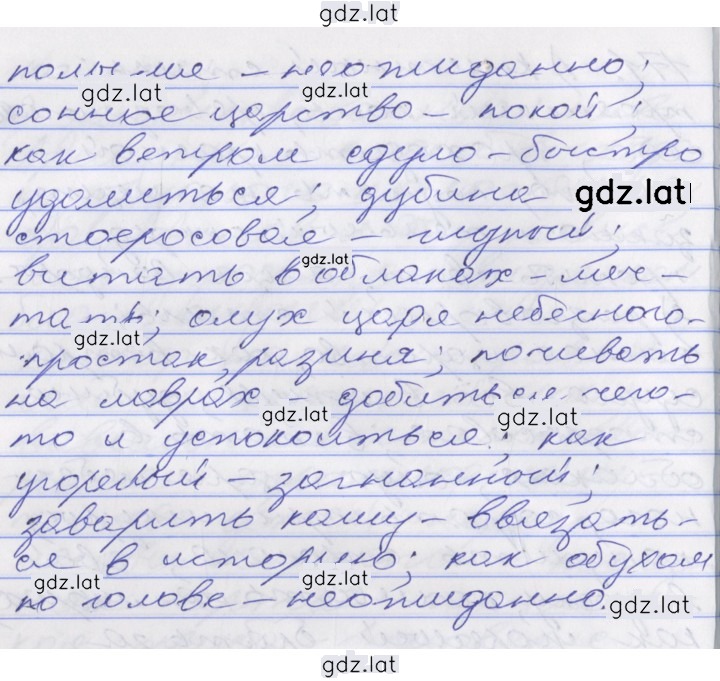 gdz.lat
полымя – неожиданно;
gdz.lat gdz.lat
сонное царство – покой;
как ветром сдуло – быстро
удалиться; дубина gdz.lat
стоеросовая – глупый;
gdz.lat
витать в облаках – меч-
тать; олух царя небесного –
gdz.lat
простак, разиня; почивать
на лаврах – добиться чего-
gdz.lat gdz.lat
то и успокоиться; как
угорелый – загнанный;
заварить кашу – ввязать-
ся в историю; как обухом
gdz.lat gdz.lat
по голове – неожиданно. gdz.lat
gdz.lat